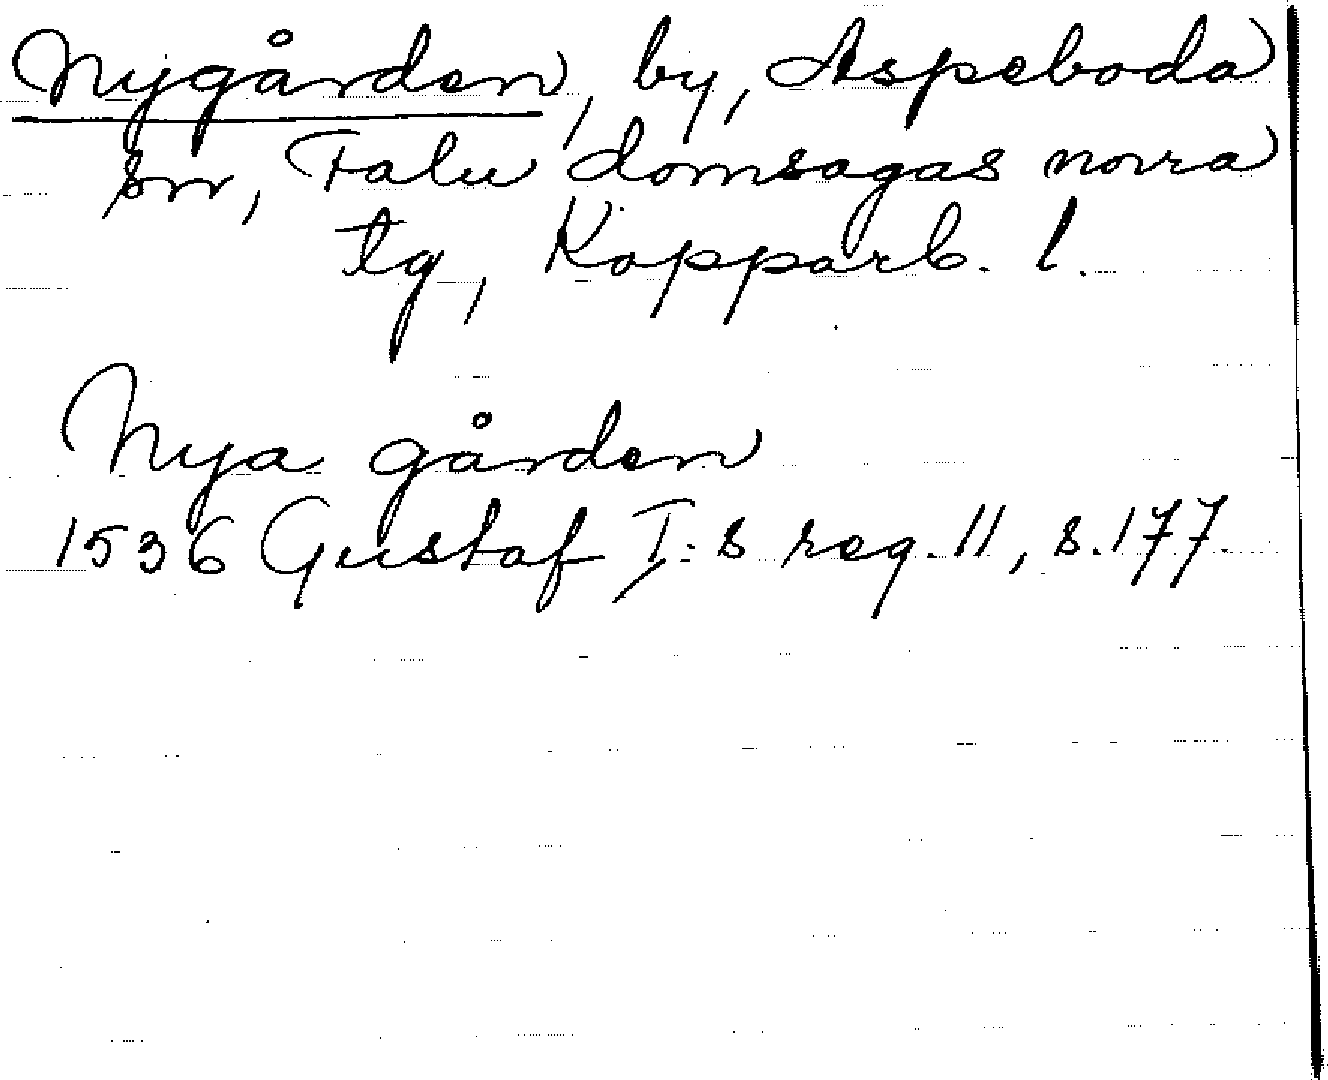 Nygården, by, Aspeboda
sn, Falu domsagas norra
tg, Kopparb. l.
Nya gården
1536 Gustaf I:s reg. 11, s. 177.